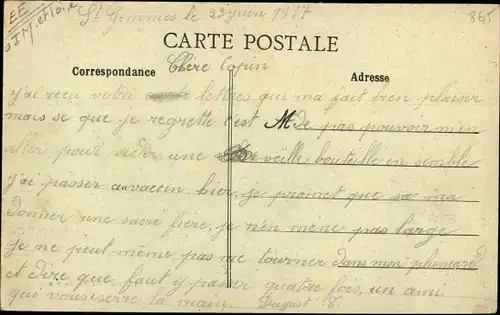 EE
M et Loire
St Gemmes le 23 juin 1917
865
CARTE POSTALE
Correspondance
Adresse
Chere Copin
j'ai recu votre lettres qui ma fait bien plaisir
mais se que je regrette c'est M de pas pouvoir m'en
aller pour vider une veille bouteille en semble
j'ai passer au vaccin hier, je promet que sa ma
donner une sacre fiere, je n'en mene pas large
je ne peut même pas me tourner dans mon plumard
et dire que faut y passer quatre fois, un ami
qui vous serre la main. Dugast E.